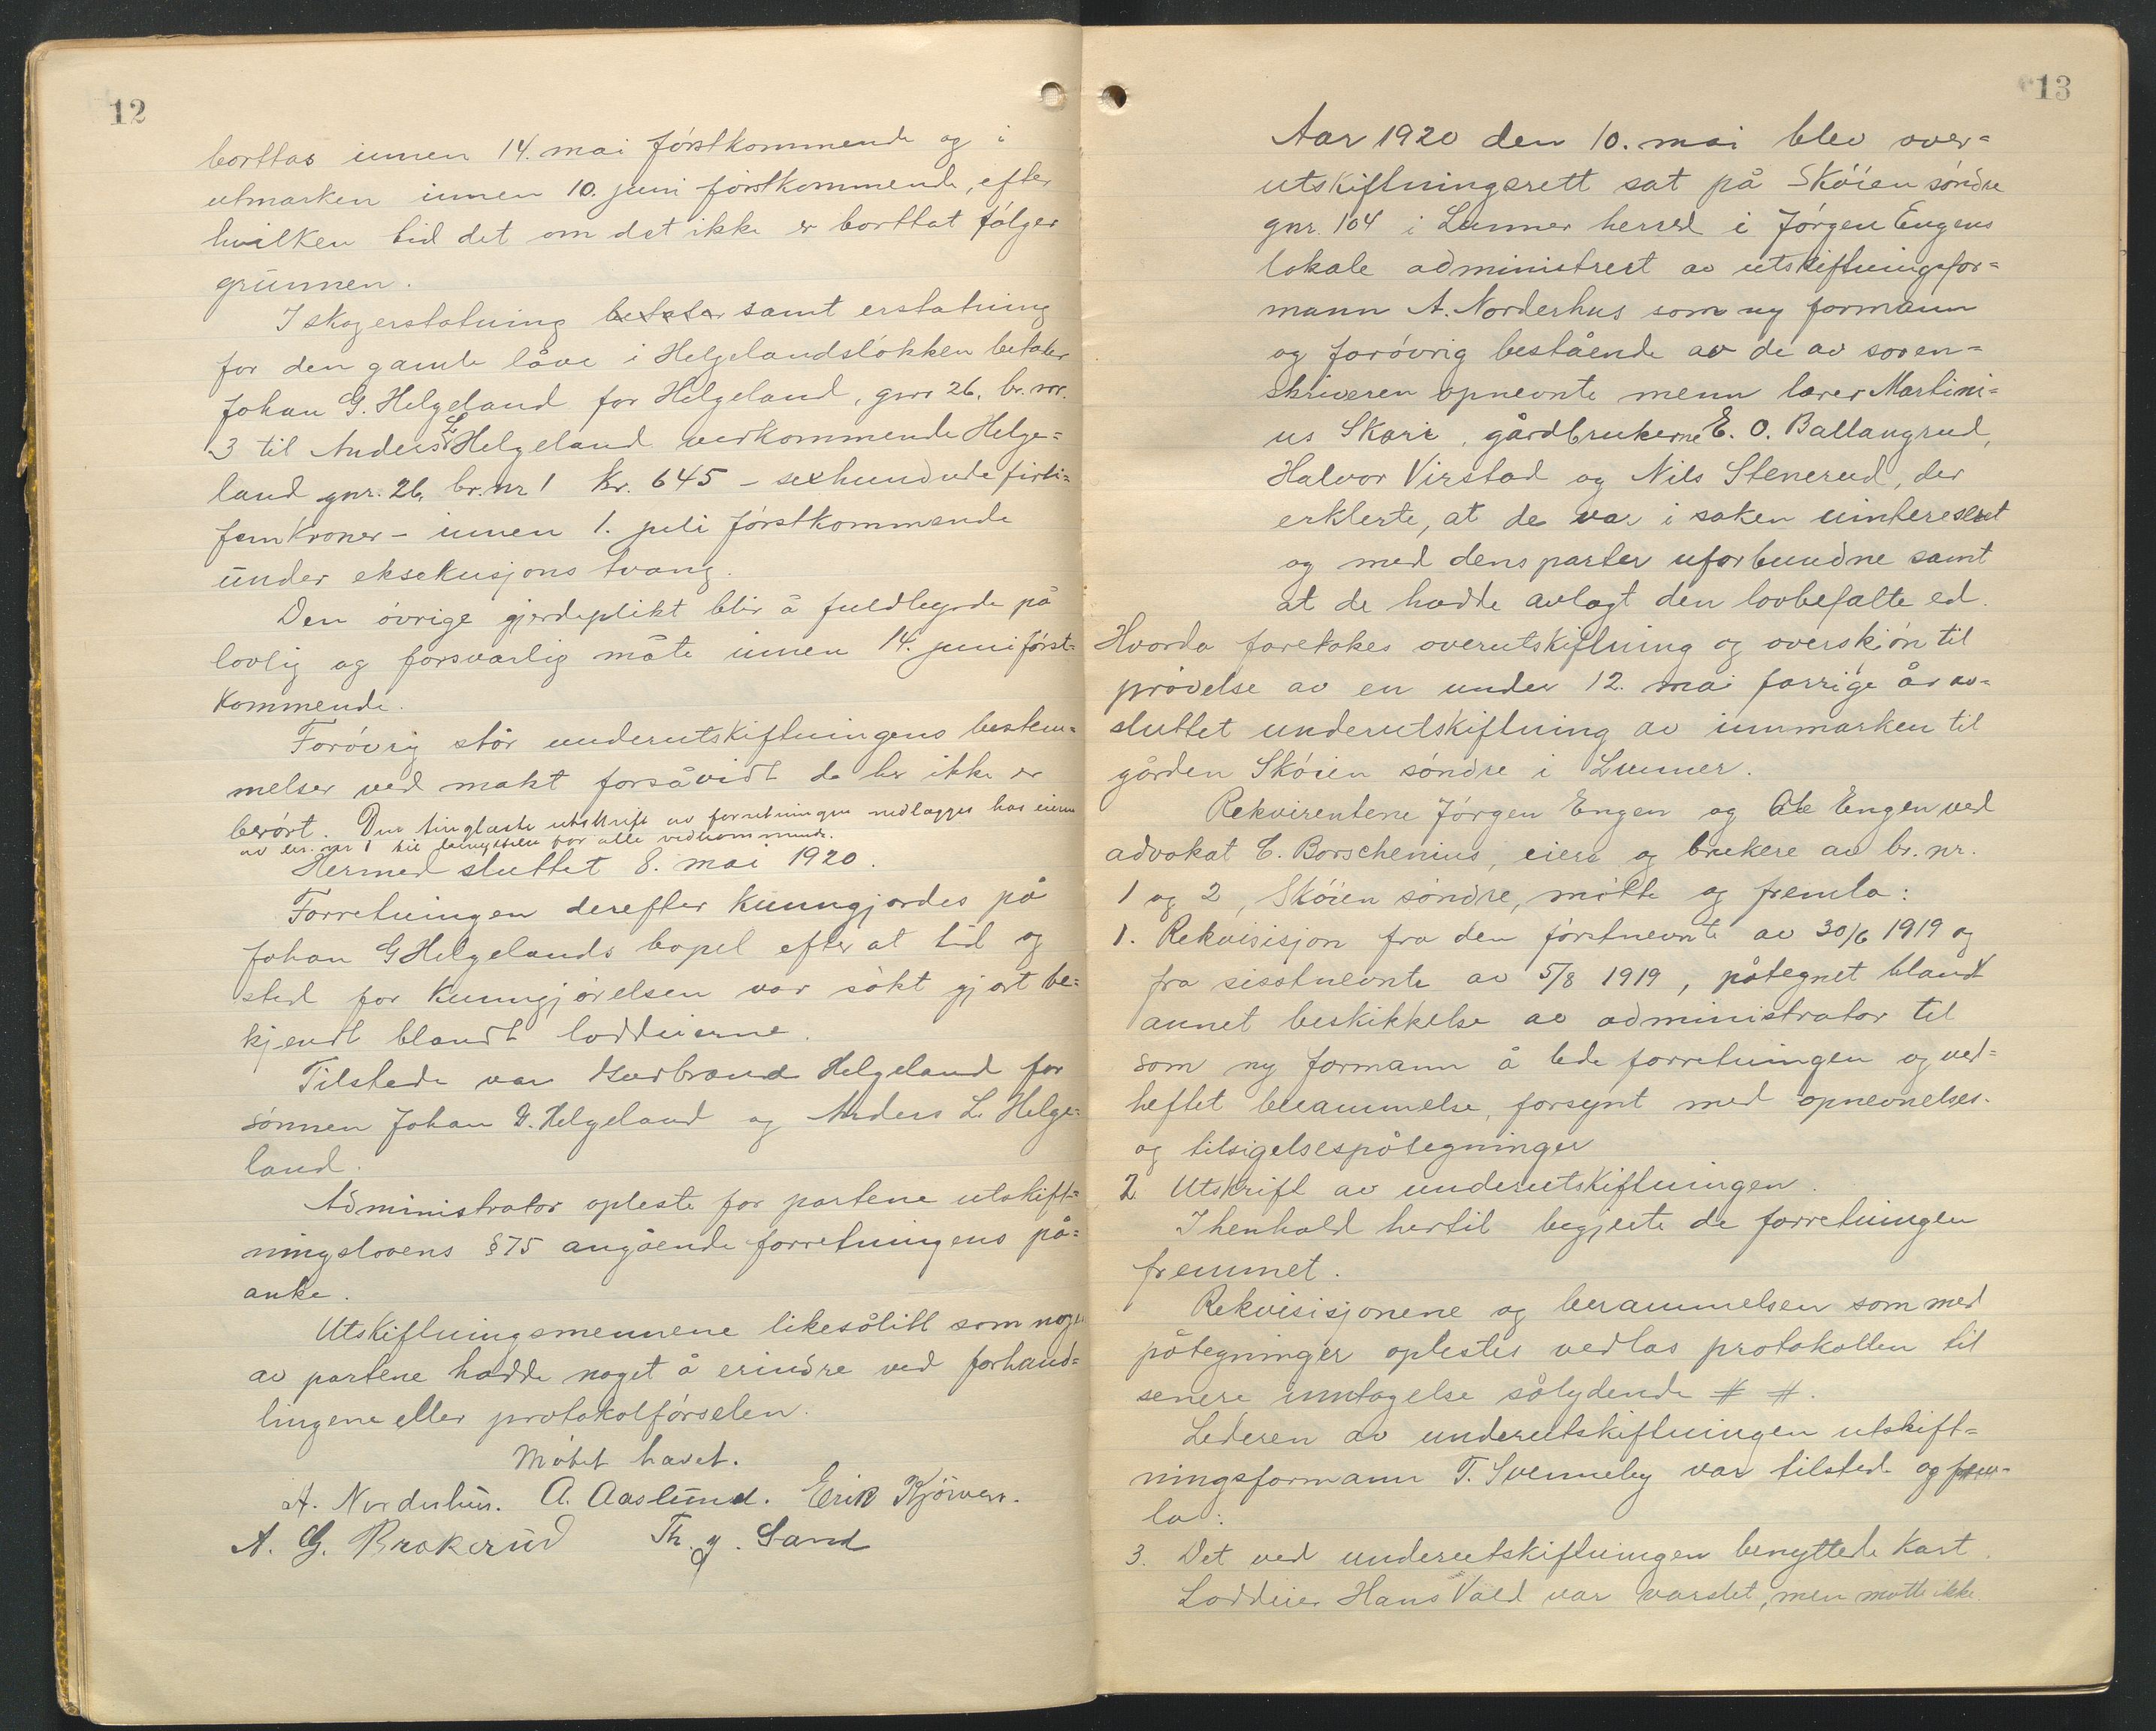 12
borttas innen 14. mai förstkommende og i
utmarken innen 10. juni förstkommende, efter
hvilken tid det om det ikke er borttat fölger
grunnen.
I skogerstatning betaler samt erstatning
for den gamle låve i Helgelandslökken betaler
Johan G. Helgeland for Helgeland, gnr 26, br. nr.
3 til Anders L Helgeland vedkommende Helge=
land gnr. 26, br. nr 1 Kr. 645 – sexhundrede firti=
femkroner – innen 1. juli förstkommende
under eksekusjons tvang.
Den övrige gjerdeplikt blir å fuldbyrde på
lovlig og forsvarlig måte innen 14. juni först=
kommende.
Forövrig står underutskiftningens bestem=
melser ved makt forsåvidt de her ikke er
berört. Den tinglæste utskrift av forretningen nedlægges hos eieren
av br. nr 1 til benyttelse for alle vedkommende.
Hermed sluttet 8. mai 1920.
Forretningen derefter kunngjordes på
Johan G Helgelands bopel efter at tid og
sted for kunngjörelsen var sökt gjort be=
kjendt blandt loddeierne.
Tilstede var Gudbrand Helgeland for
sönnen Johan G. Helgeland og Anders L. Helge=
land.
Administrator opleste for partene utskift=
ningslovens § 75 angående forretningens på=
anke.
Utskiftningsmennene likesålitt som nogen
av partene hadde noget å erindre ved forhand=
lingene eller protokolförselen.
Mötet hævet.
A. Norderhus. A. Aaslund. Erik Kjörven.
A. G. Brakerud Th. G. Sand
13
Aar 1920 den 10. mai blev over=
utskiftningsrett sat på Sköien söndre
gnr. 104 i Lunner herred i Jörgen Engens
lokale administrert av utskiftningsfor=
mann A. Norderhus som ny formann
og forövrig bestående av de av soren=
skriveren opnevnte menn lærer Martini=
us Skari, gårdbrukerne E. O. Ballangrud,
Halvor Virstad og Nils Stenerud, der
erklerte, at de var i saken uinteresert
og med dens parter uforbundne samt
at de hadde avlagt den lovbefalte ed.
Hvorda foretokes overutskiftning og overskjön til
prövelse av en under 12. mai forrige år av=
sluttet underutskiftning av innmarken til
gården Sköien söndre i Lunner.
Rekvirentene Jörgen Engen og Ole Engen ved
advokat C. Borschenius, eiere og brukere av br. nr.
1 og 2, Sköien söndre, mötte og fremla:
1. Rekvisisjon fra den förstnevnte av 30/6 1919 og
fra sisstnevnte av 5/8 1919, påtegnet blandt
annet beskikkelse av administrator til
som ny formann å lede forretningen og ved=
heftet berammelse, forsynt med opnevnelses-
og tilsigelsespåtegninger
2 Utskrift av underutskiftningen.
I henhold hertil begjerte de forretningen
fremmet.
Rekvisisjonene og berammelsen som med
påtegninger oplestes vedlas protokollen til
senere inntagelse sålydende # #.
Lederen av underutskiftningen utskift=
ningsformann T. Svenneby var tilstede og frem=
la:
3. Det ved underutskiftningen benyttede kart.
Loddeier Hans Vold var varslet, men mötte ikke.